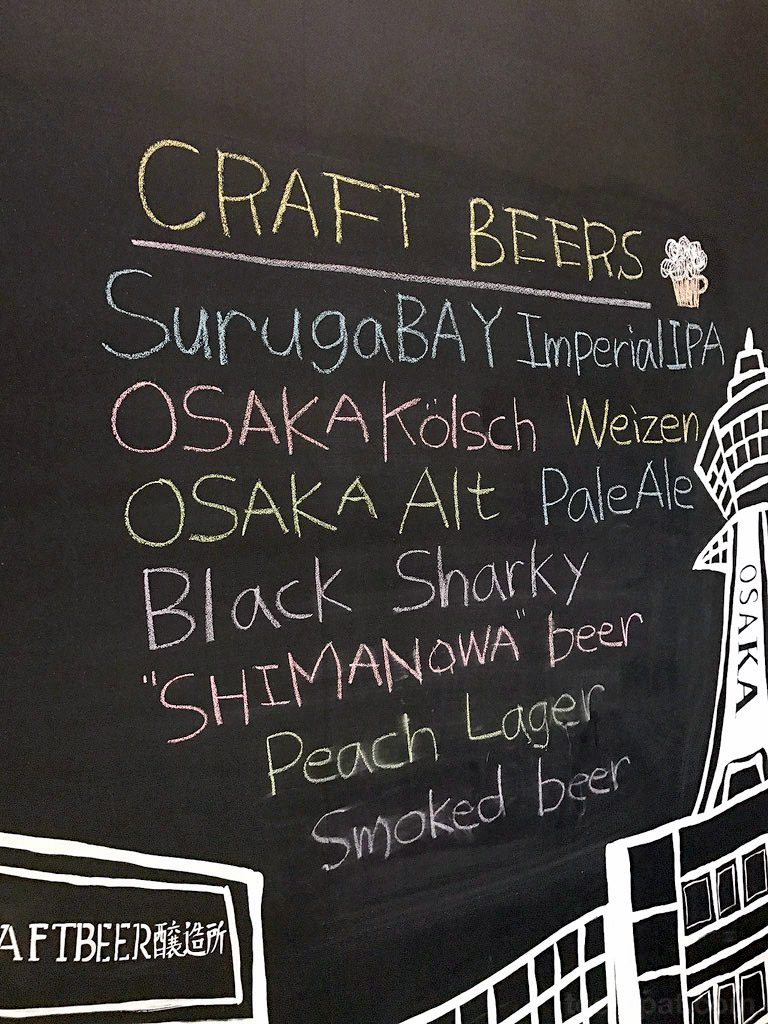 CRAFT BEERS
SurugaBAY ImperialIPA
OSAKA Kölsch Weizen
OSAKA Alt PaleAle
Black Sharky
"SHIMANOWA" beer
Peach Lager
Smoked beer
OSAKA
AFTBEER醸造所